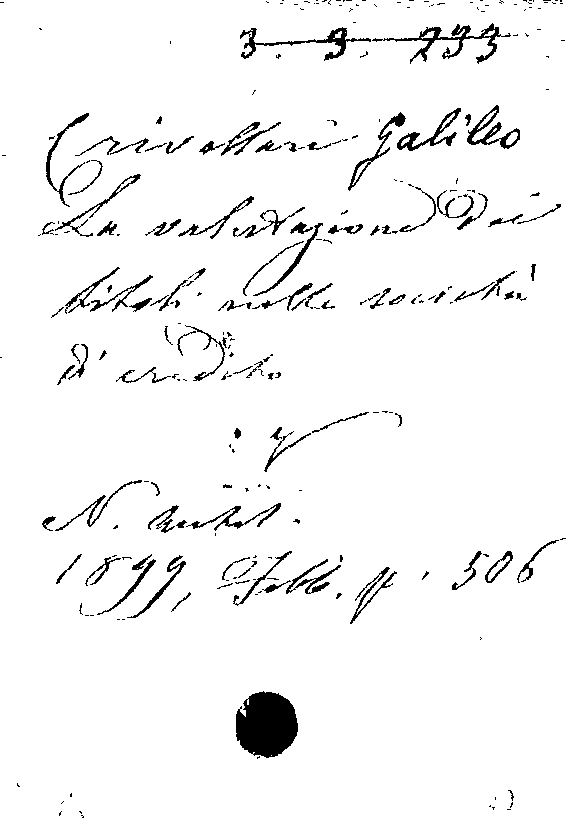 3. 3. 233
Crivellari Galileo
La valutazione dei
titoli nelle società
di credito
N. Antol.
1899, Febb. p. 506